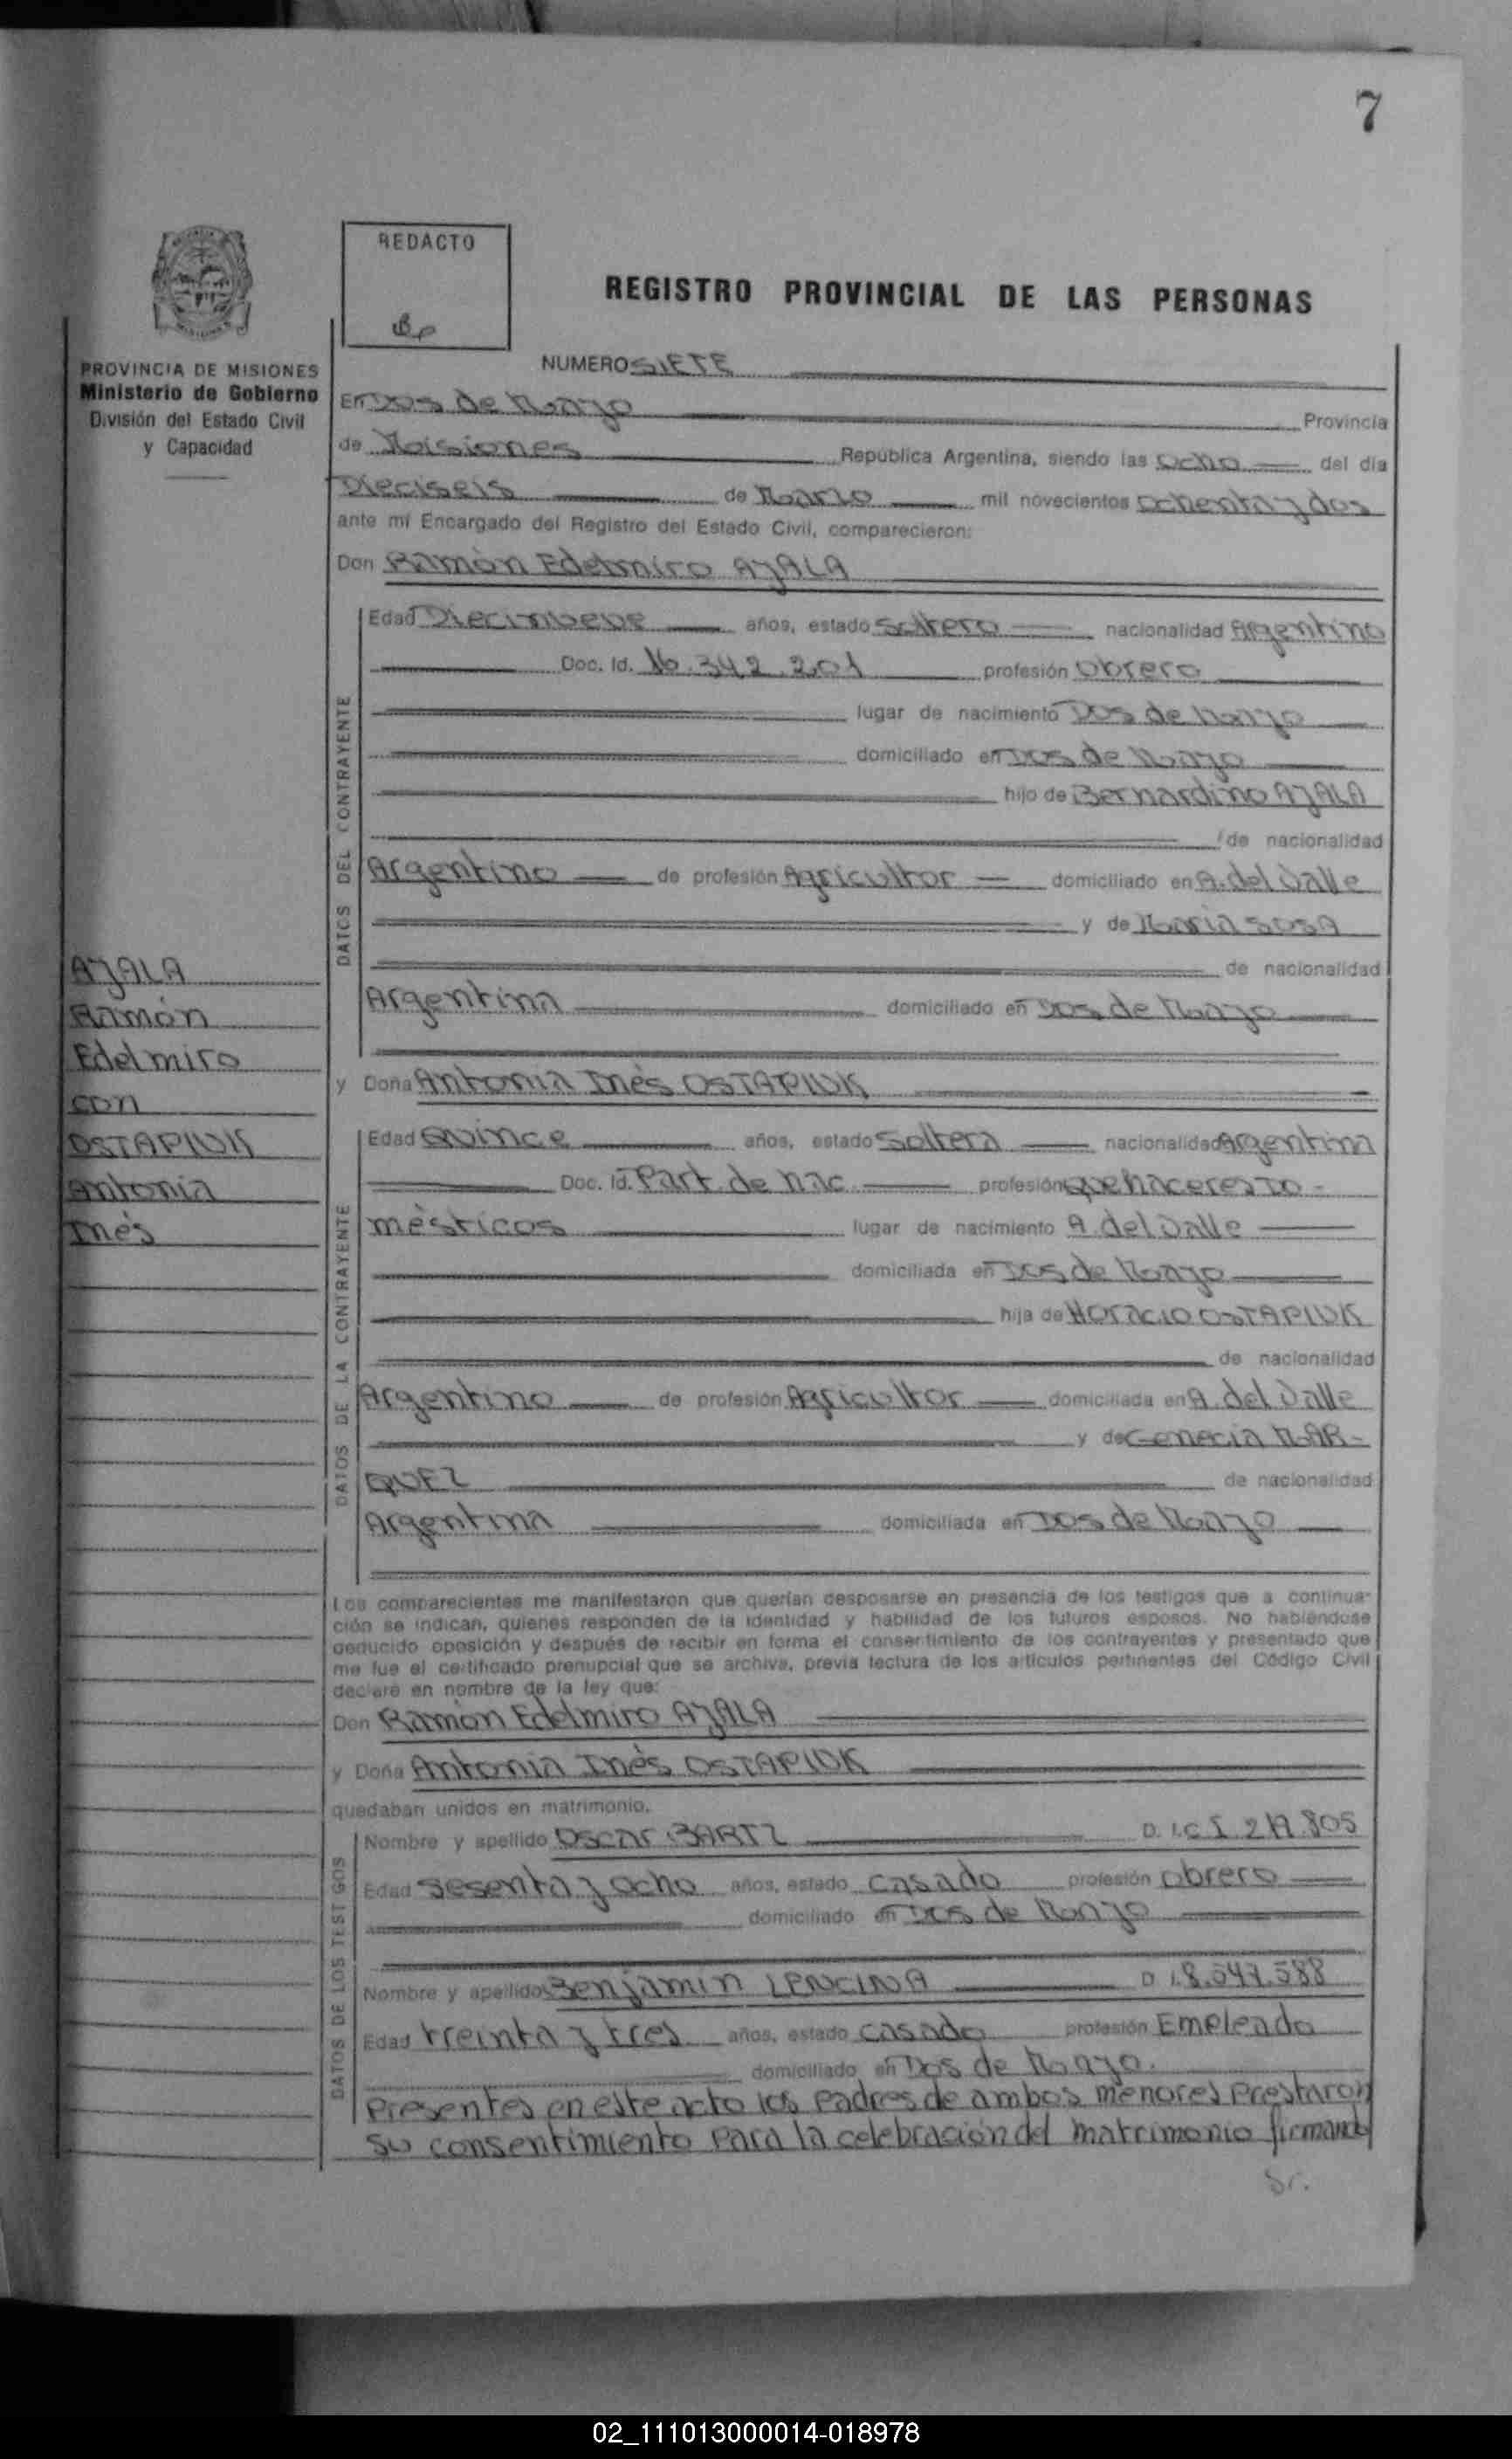 7
REDACTO
REGISTRO PROVINCIAL DE LAS PERSONAS
PROVINCIA DE MISIONES
Ministerio de Gobierno
División del Estado Civil
y Capacidad
NUMERO SIETE
En Dos de Mayo Provincia
de Misiones República Argentina, siendo las ocho del día
Dieciseis de Marzo mil novecientos ochenta y dos
ante mí Encargado del Registro del Estado Civil, comparecieron:
Don Ramón Edelmiro AYALA
DATOS DEL CONTRAYENTE
Edad Diecinueve años, estado Soltero nacionalidad Argentino
Doc. Id. 16.342.201 profesión Obrero
lugar de nacimiento Dos de Mayo
domiciliado en Dos de Mayo
hijo de Bernardino AYALA
de nacionalidad
Argentino de profesión Agricultor domiciliado en A. del Valle
y de María SOSA
de nacionalidad
Argentina domiciliado en Dos de Mayo
AYALA
Ramón
Edelmiro
con
OSTAPIUK
Antonia
Inés
y Doña Antonia Inés OSTAPIUK
DATOS DE LA CONTRAYENTE
Edad Quince años, estado Soltera nacionalidad Argentina
Doc. Id. Part. de nac profesión quehaceres do-
mésticos lugar de nacimiento A. del Valle
domiciliada en Dos de Mayo
hija de Horacio OSTAPIUK
de nacionalidad
Argentino de profesión Agricultor domiciliada en A. del Valle
y de MAR-
QUEZ de nacionalidad
Argentina domiciliada en Dos de Mayo
Los comparecientes me manifestaron que querían desposarse en presencia de los testigos que a continua-
ción se indican, quienes responden de la identidad y habilidad de los futuros esposos. No habiéndose
deducido oposición y después de recibir en forma el consentimiento de los contrayentes y presentado que
me fue el certificado prenupcial que se archiva, previa lectura de los artículos pertinentes del Código Civil
declaré en nombre de la ley que:
Don Ramón Edelmiro AYALA
y Doña Antonia Inés OSTAPIUK
quedaban unidos en matrimonio.
DATOS DE LOS TESTIGOS
Nombre y apellido Oscar BARTZ D. I.
Edad Sesenta y ocho años, estado casado profesión obrero
domiciliado en Dos de Mayo
Nombre y apellido Benjamin LENCINA D. I. 8.547.588
Edad treinta y tres años, estado casado profesión Empleado
domiciliado en Dos de Mayo.
Presentes en este acto los Padres de ambos menores Prestaron
su consentimiento Para la celebración del matrimonio firmando
02_111013000014-018978